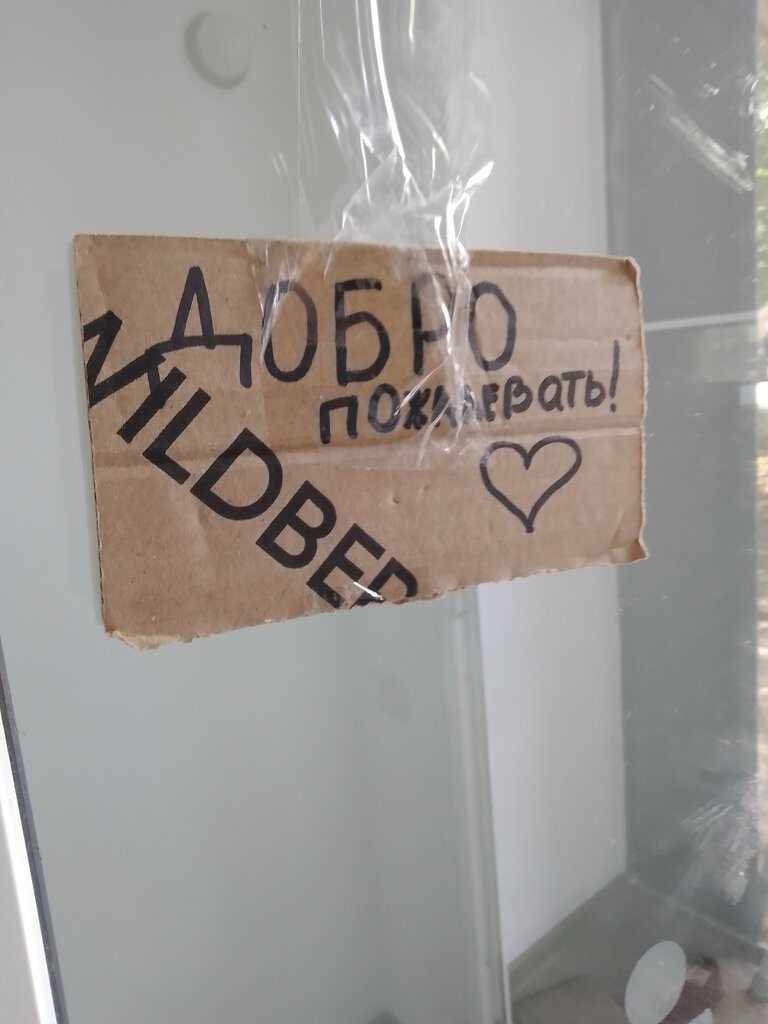 ДОБРО
ПОЖАЛЕВаТЬ!
WILDBER